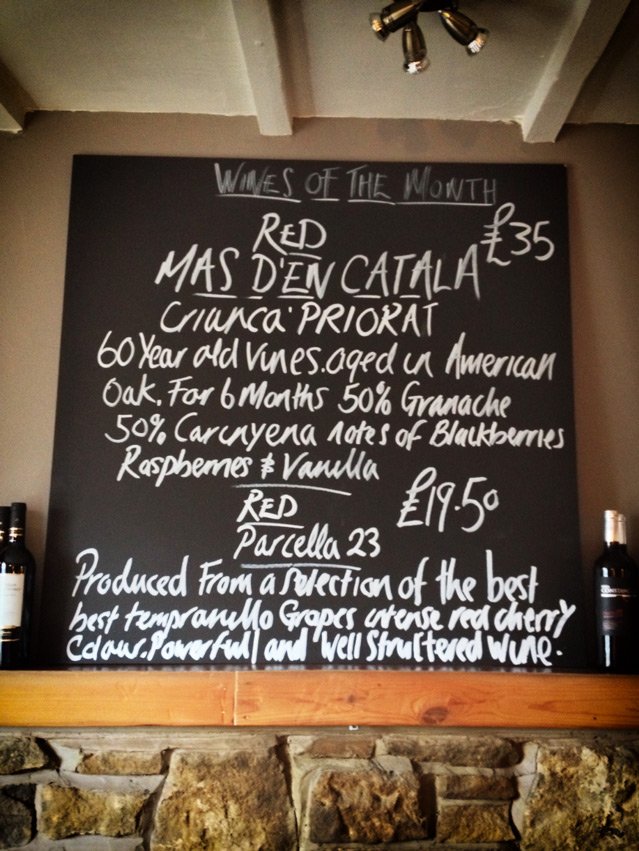 WINES OF THE MONTH
RED £35
MAS D'EN CATALA
Crianca' PRIORAT
60 Year old Vines. aged in American
Oak. For 6 Months 50% Granache
50% Carinyena notes of Blackberries
Raspberries & Vanilla
RED £19.50
Parcella 23
Produced From a Selection of the best
best tempranullo Grapes intense red cherry
Colour. Powerfull and Well Structered Wine.